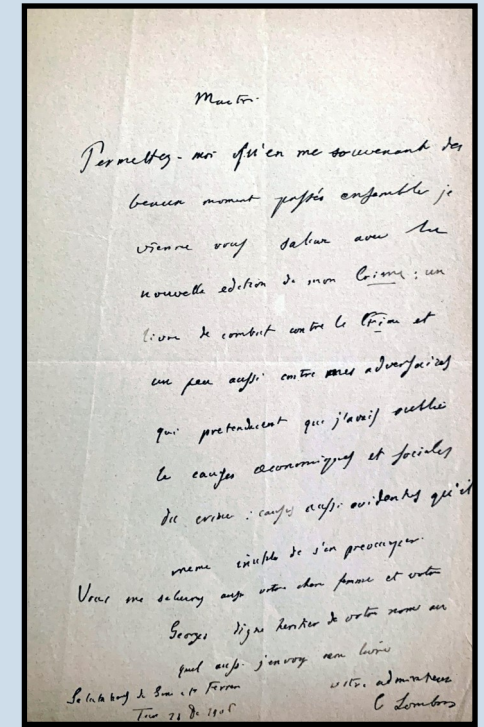 Maitre
Permettez-moi qu'en me souvenant des
beaux moment passés ensemble je
vienne vous saluer avec la
nouvelle edition de mon Crime : un
livre de combat contre le Crime et
un peu aussi contre mes adversaires
qui pretendaient que j'avais oublié
le causes œconomiques et sociales
du crime : causes aussi evidentes qu'il
meme inutile de s'en preoccuper.
Vous me saluerez aussi votre chere femme et votre
Georges digne heritier de votre nom au
quel aussi j'envoy mon livre
votre admirateur
C Lombros
de et Ferrero
Tur 21 1906